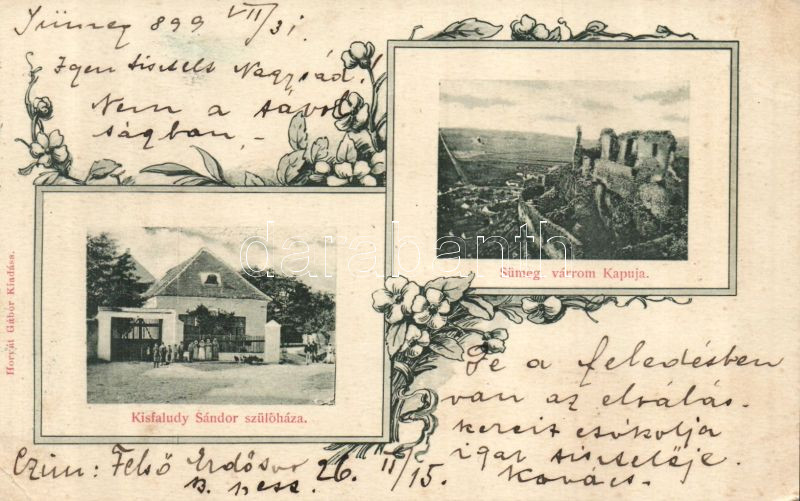 Sümeg 899 VII/31
Igen tisztelt Nagysád!
Nem a távol
ságban,
Sümeg várrom Kapuja.
Kisfaludy Sándor szülőháza.
Horvát Gábor Kiadása.
darabanth
De a feledésben
van az elválás.
kezeit csókolja
igaz tisztelője.
Kovács.
Czim: Felső Erdősor 26. II/15.
B. pest.